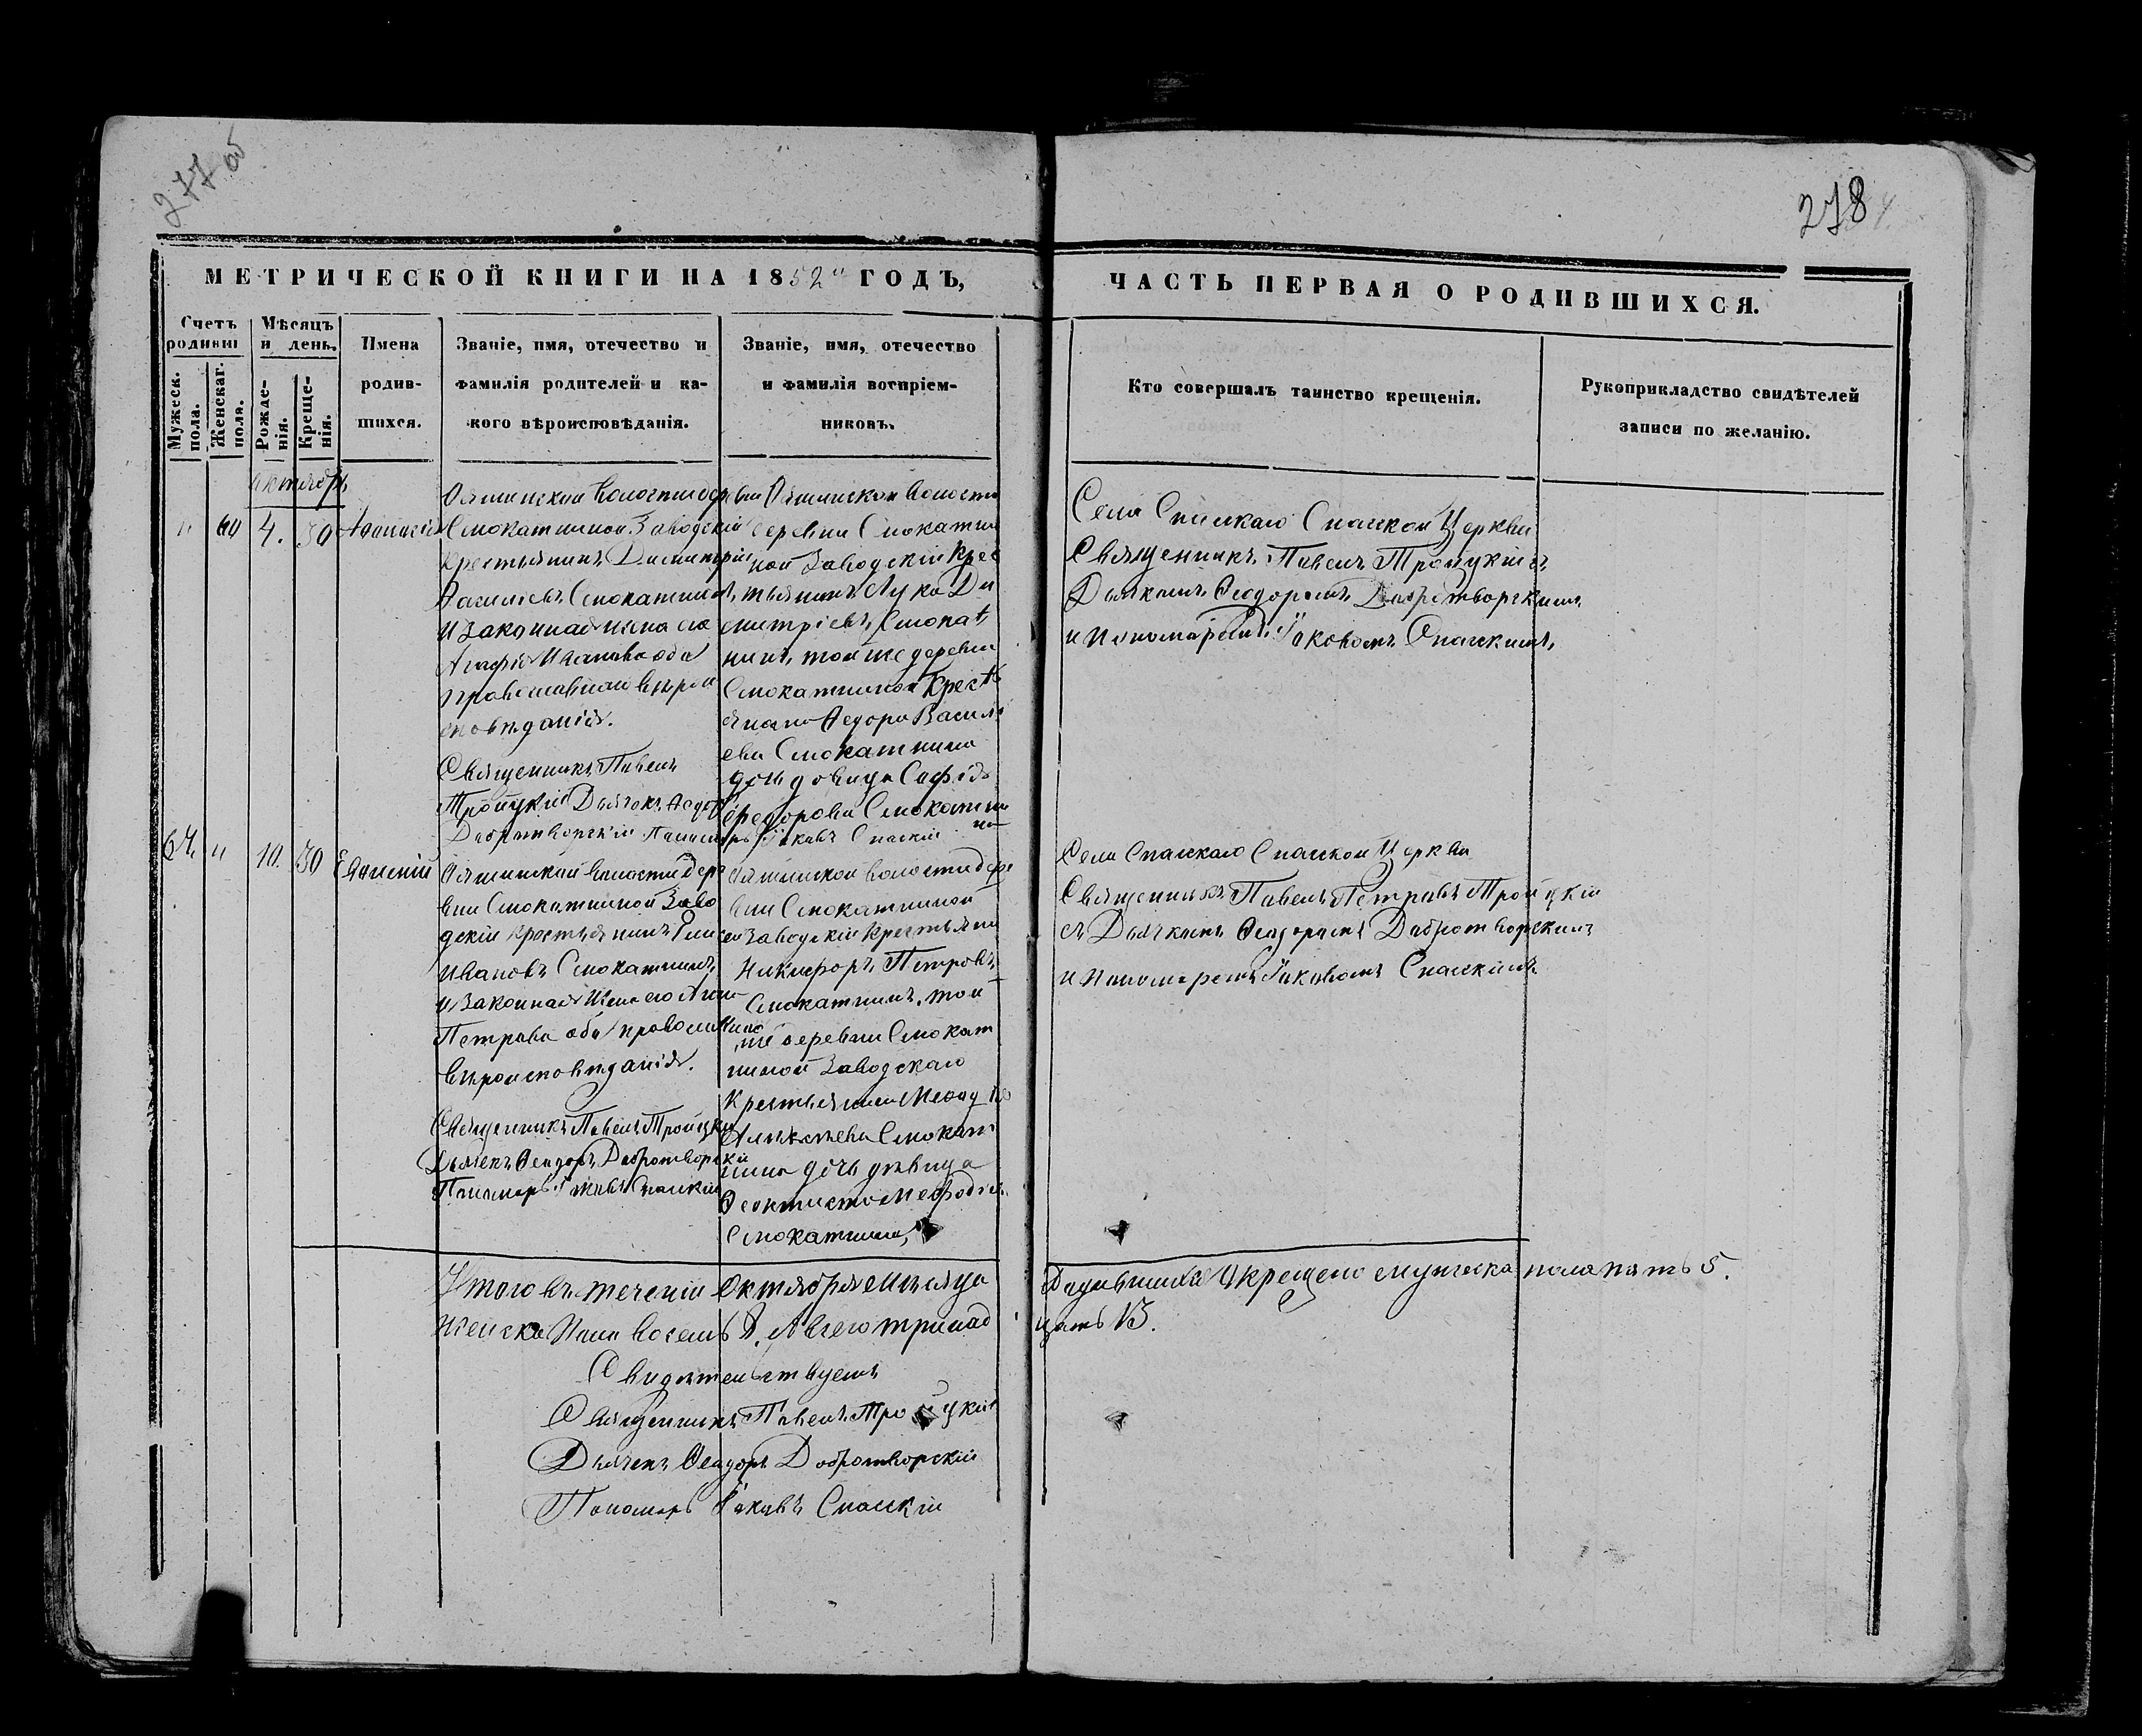 277 об
278
МЕТРИЧЕСКОЙ КНИГИ НА 1852й ГОДЪ,
ЧАСТЬ ПЕРВАЯ О РОДИВШИХСЯ.
Счетъ родивш
Мужеск. пола.
Женскаг. пола.
Мѣсяцъ и день.
Рожде- нія.
Креще- нія.
Имена
родив-
шихся.
Званіе, имя, отечество и
фамилія родителей и ка-
кого вѣроисповѣданія.
Званіе, имя, отечество
и фамилія воспріем-
никовъ.
Кто совершалъ таинство крещенія.
Рукоприкладство свидѣтелей
записи по желанію.
октябрь
" 60 4. 30
Ояшинской Волости дер
Смокатиной Заводскій
Крестьянинъ Димитрій
Васильевъ Смокатинъ,
и законная жена его
Агафія Иванова оба
православнаго вѣрои
сповѣданія.
Священникъ Павелъ
Тройцкій Дьячекъ Феодоръ
Добротворскій Пономарь Іаковъ Спаскій
евни Ояшинской волости
деревни Смокатин
ной Заводскій Крес
тьянинъ Лука Ди
митріевъ Смокат
нинъ, той же деревни
Смокатиной Крестъ
янина Федора Василь
ева Смокатнина
дочь девица Софія
Федорова Смокатни
на
Села Спаскаго Спаской Церкви
Священникъ Павелъ Тройцкій съ
Дьячкомъ Феодоромъ Добротворскимъ
и Пономаремъ Іаковомъ Спаскимъ,
64 " 10. 30
Ояшинской волости дере
вни Смокатиной Заво
дскій крестьянинъ
Ивановъ Смокатнинъ,
и законная жена его Анна
Петрова оба православнаго
вѣроисповѣданія.
Священникъ Павелъ Тройцкій
Дьячекъ Феодоръ Добротворскій
Пономарь Іаковъ Спаскій
Ояшинской волости дере
вни Смокатниной
Заводскій Крестьянин
Никифоръ Петровъ
Смокатнинъ, той
же деревни Смокат
ниной Заводскаго
Крестьянина
Смокат
нина дочь дѣвица
Феоктиста Мефодіе
Смокатнина,
Села Спаскаго Спаской Церкви
Священникъ Павелъ Петровъ Тройцкій
съ Дьячкомъ Феодоромъ Добротворскимъ
и Пономаремъ Іаковомъ Спаскимъ
Итого въ теченіи Октября мѣсяца Родившихся и крещено мужеска пола пять 5.
женска пола восемь 8. А всего тринад цать 13.
Свидѣтельствуемъ
Священникъ Павелъ Тройцкій
Дьячекъ Феодоръ Добротворскій
Пономарь Іаковъ Спаскій